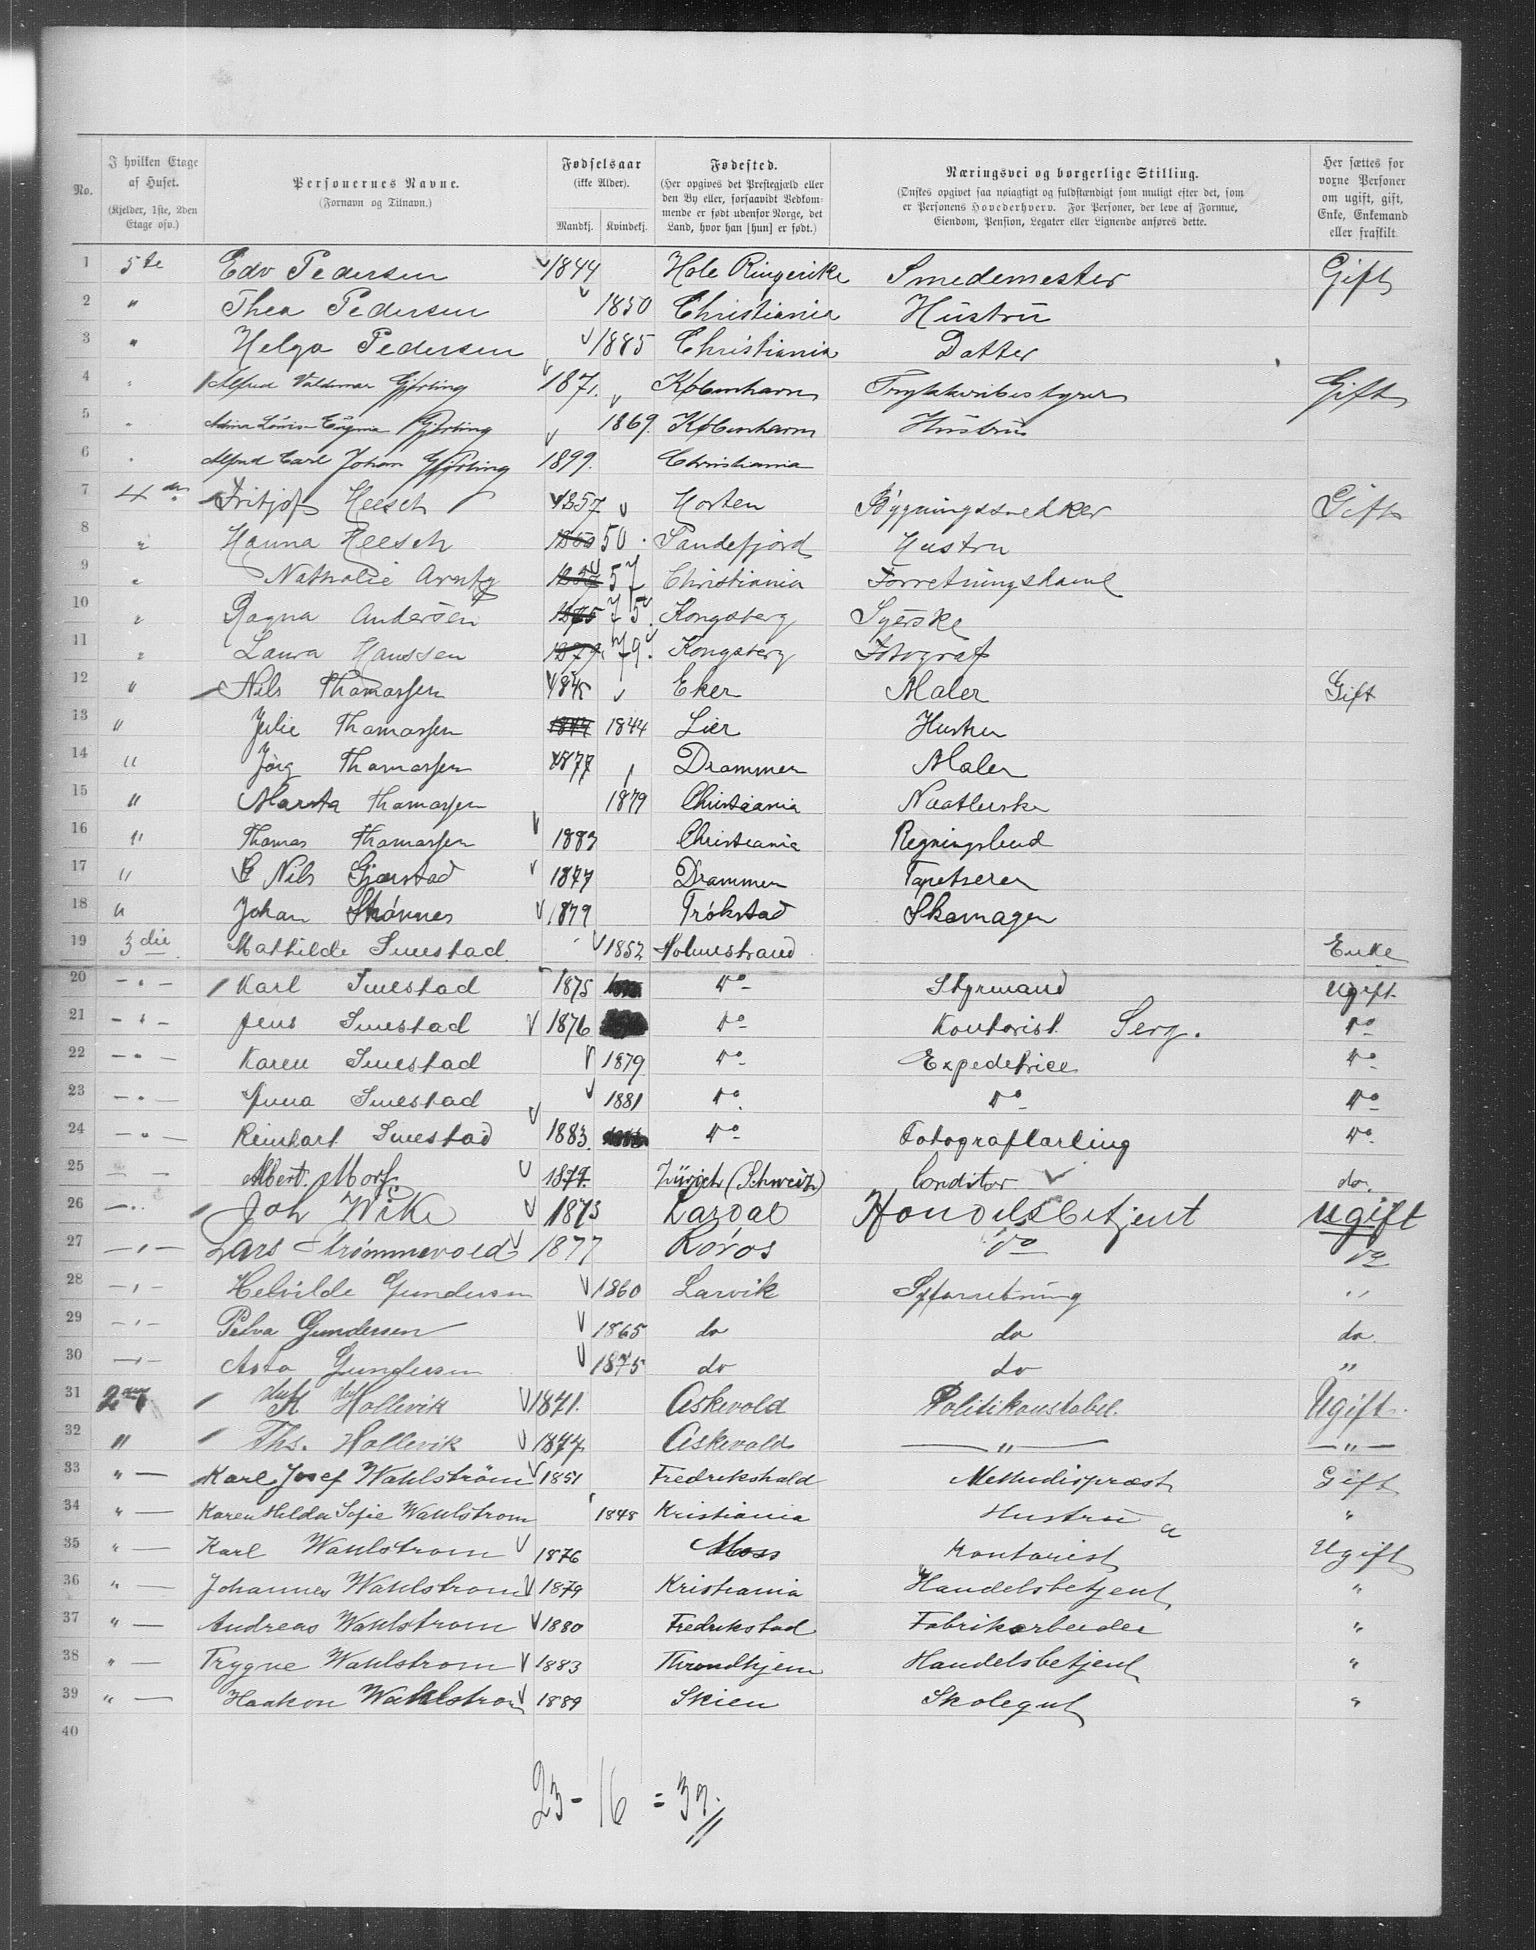 No.
I hvilken Etage af Huset. (Kjelder, 1ste, 2den Etage osv.)
Personernes Navne. (Fornavn og Tilnavn.)
Fødselsaar (ikke Alder). Mandkj. Kvindekj.
Fødested. (Her opgives det Prestegjæld eller den By eller, forsaavidt Vedkommende er født udenfor Norge, det Land, hvor han [hun] er født.)
Næringsvei og borgerlige Stilling. (Ønskes opgivet saa nøiagtigt og fuldstændigt som muligt efter det, som er Personens Hovederhverv. For Personer, der leve af Formue, Eiendom, Pension, Legater eller Lignende anføres dette.)
Her sættes for voxne Personer om ugift, gift, Enke, Enkemand eller fraskilt.
1 5te Edv Pedersen 1844 Hole Ringerike Smedemester Gift
2 " Thea Pedersen 1850 Christiania Hustru
3 " Helga Pedersen 1885 Christiania Datter
4 " Alfred Valdemar Gjørling 1871. Københavm Gift
5 " Gjørling 1869. Københavm Hustru
6 " Alfred Carl Johan Gjørling 1899. Christiania
7 4de Fritjof Heesch 1857 Horten Bygningssnedker Gift
8 " Hanna Heesch 50. Sandefjord Hustru
9 " Nathalie Arntz 57 Christiania Forretningsdame
10 " Ragna Andersen 1875 75. Kongsberg Syerske
11 " Laura Hanssen 1879. 79. Kongsberg Fotograf
12 " Nils Thomassen 1845 Eker Maler Gift
13 " Julie Thomassen 1844 Lier Hustru
14 " Jørg Thomassen 1877 Drammen Maler
15 " Marta Thomassen 1879 Christiania
16 " Thomas Thomassen 1883 Christiania Regningsbud
17 " Nils Gjerstad 1877 Drammen Tapetserer
18 " Johan Skovnes 1879 Trøkstad Skomager
19 3die Mathilde Smestad 1852 Holmestrand Enke
20 - " - Karl Smestad 1875 Do Styrmand Ugift.
21 - " - Jens Smestad 1876 Do Kontorist Serg. Do
22 - " - Karen Smestad 1879 Do Expeditrice Do
23 - " - Anna Smestad 1881 Do Do Do
24 - " - Reinhart Smestad 1883. Do Fotograflærling Do
25 - " - Albert Morf 1879. Zürich (Schweitz) Conditor do.
26 - " - Joh Wike 1873 Lardal Handelsbetjent Ugift
27 - " - Lars Strømmevold 1877 Røros Do Do
28 - " - Helvilde Gundersen 1860 Larvik Syforretning "
29 - " - Petra Gundersen 1865 do do do.
30 - " - Asta Gundersen 1875 do do "
31 2den K Hollevik 1871. Askevold Politikonstabel. Ugift.
32 " Ths. Hollevik 1877. Askevold — " — — " —
33 " — Karl Josef Wahlstrøm 1851 Fredrikshald Methodispræst Gift
34 " — Karen Hilda Sofie Wahlstrom 1848 Kristiania Hustru "
35 " — Karl Wahlstrom 1876 Moss Kontorist Ugift
36 " — Johannes Wahlstrom 1879 Kristiania Handelsbetjent "
37 " — Andreas Wahlstrom 1880 Fredrikstad Fabrikarbeider "
38 " — Trygve Wahlstrom 1883 Throndhjem Handelsbetjent "
39 " — Haakon Wahlstrom 1889 Skien Skolegut "
40
23 - 16 = 39.